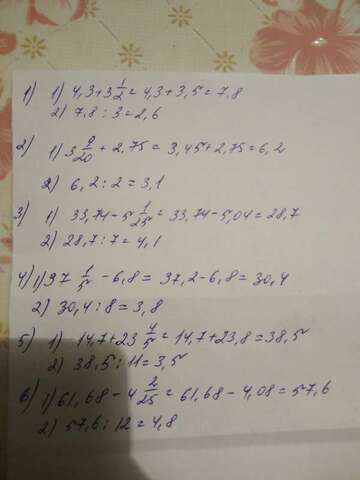 1) 1) 4,3+3 1/2 = 4,3+3,5=7,8
2) 7,8:3=2,6
2) 1) 3 9/20 + 2,75 = 3,45+2,75=6,2
2) 6,2:2=3,1
3) 1) 33,74-5 1/25 = 33,74-5,04=28,7
2) 28,7:7=4,1
4) 1) 37 1/5 - 6,8 = 37,2-6,8=30,4
2) 30,4:8=3,8
5) 1) 14,7+23 4/5 = 14,7+23,8=38,5
2) 38,5:11=3,5
6) 1) 61,68-4 2/25 = 61,68-4,08=57,6
2) 57,6:12=4,8